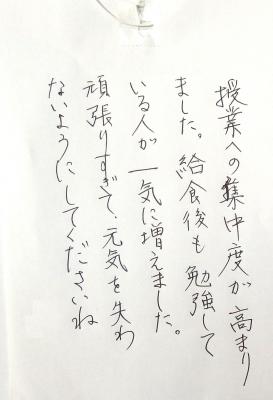 授業への集中度が高まり
ました。給食後も勉強して
いる人が一気に増えました。
頑張りすぎて、元気を失わ
ないようにしてくださいね